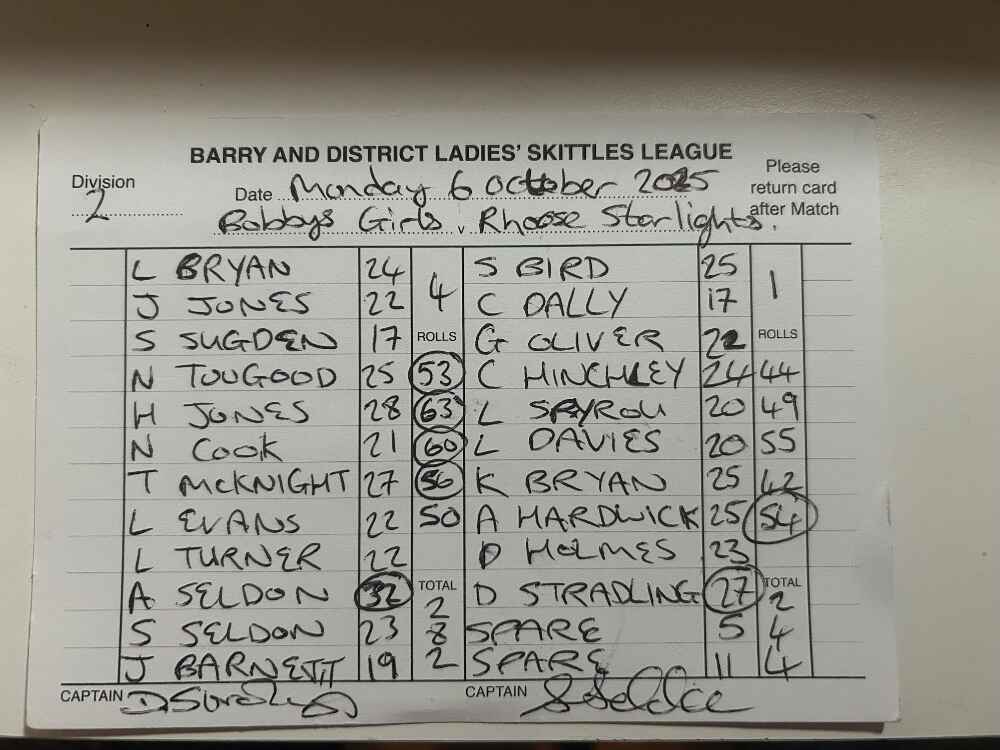 BARRY AND DISTRICT LADIES' SKITTLES LEAGUE
Division 2
Date Monday 6 October 2025
Please return card after Match
Bobbys Girls v Rhoose Starlights.
L BRYAN 24 4 S BIRD 25 1
J JONES 22 C DALLY 17
S SUGDEN 17 ROLLS G OLIVER 22 ROLLS
N TOUGOOD 25 53 C HINCHLEY 24 44
H JONES 28 63 L SPYROU 20 49
N COOK 21 60 L DAVIES 20 55
T McKNIGHT 27 56 K BRYAN 25 42
L EVANS 22 50 A HARDWICK 25 54
L TURNER 22 D HOLMES 23
A SELDON 32 TOTAL 2 D STRADLING 27 TOTAL 2
S SELDON 23 8 SPARE 5 4
J BARNETT 19 2 SPARE 11 4
CAPTAIN CAPTAIN